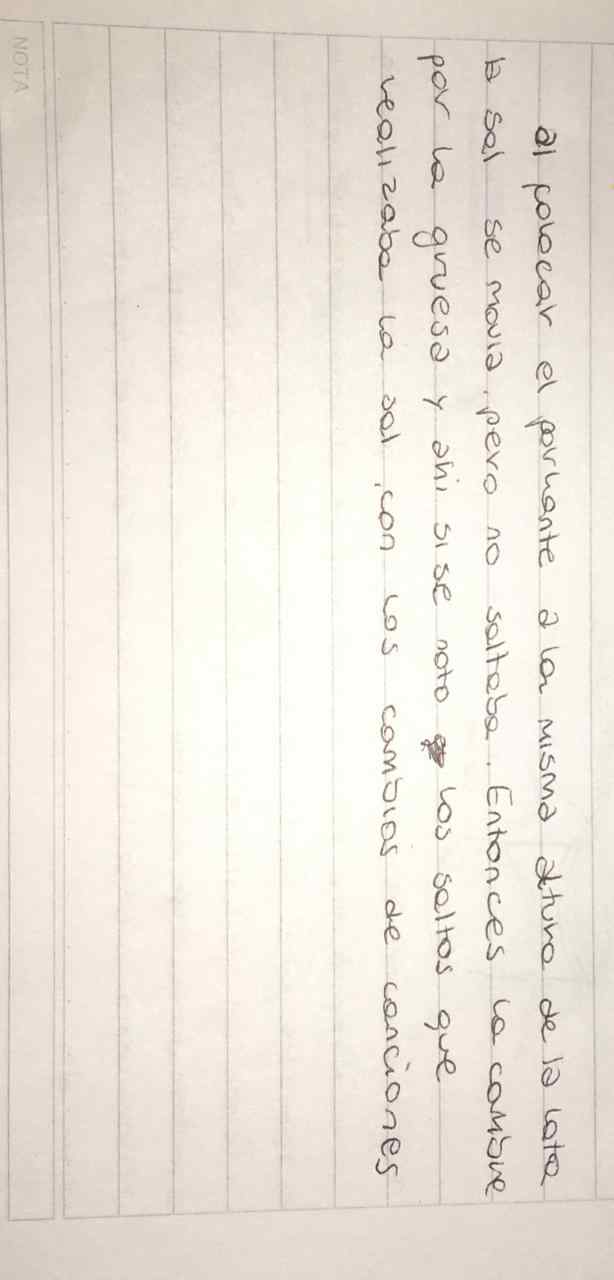 NOTA
al colocar el parlante a la misma altura de la lata
la sal se movia, pero no saltaba. Entonces la cambie
por la gruesa y ahi si se noto los saltos que
realizaba la sal, con los cambios de canciones